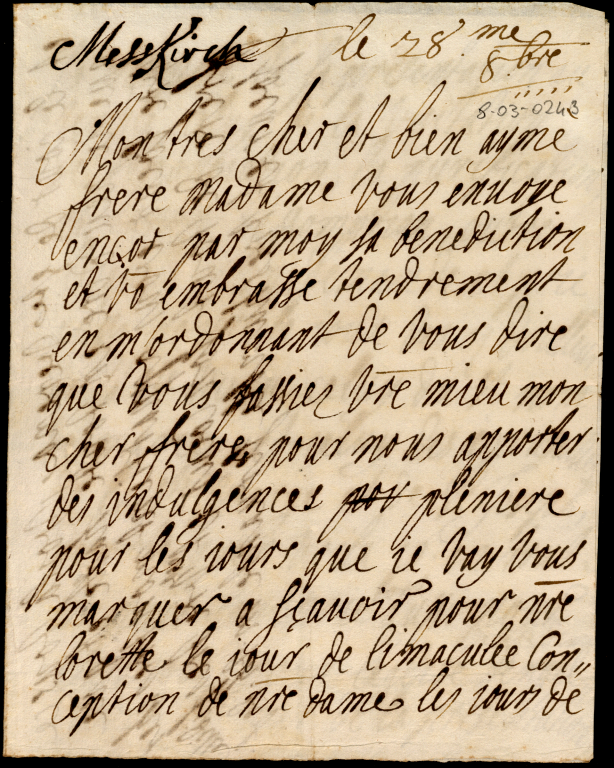 MessKirch le 28.me
8.bre
8-03-0243
Mon tres cher et bien ayme
frere Madame vous envoye
encor par moy sa benediction
et vo embrasse tendrement
en m'ordonnant de vous dire
que vous fassiez vre mieu mon
cher frere, pour nous apporter
des indulgences pleniere
pour les iours que ie vay vous
marquer a sçavoir pour nre
lorette le iour de limaculee Con„
ception de nre dame les iours de